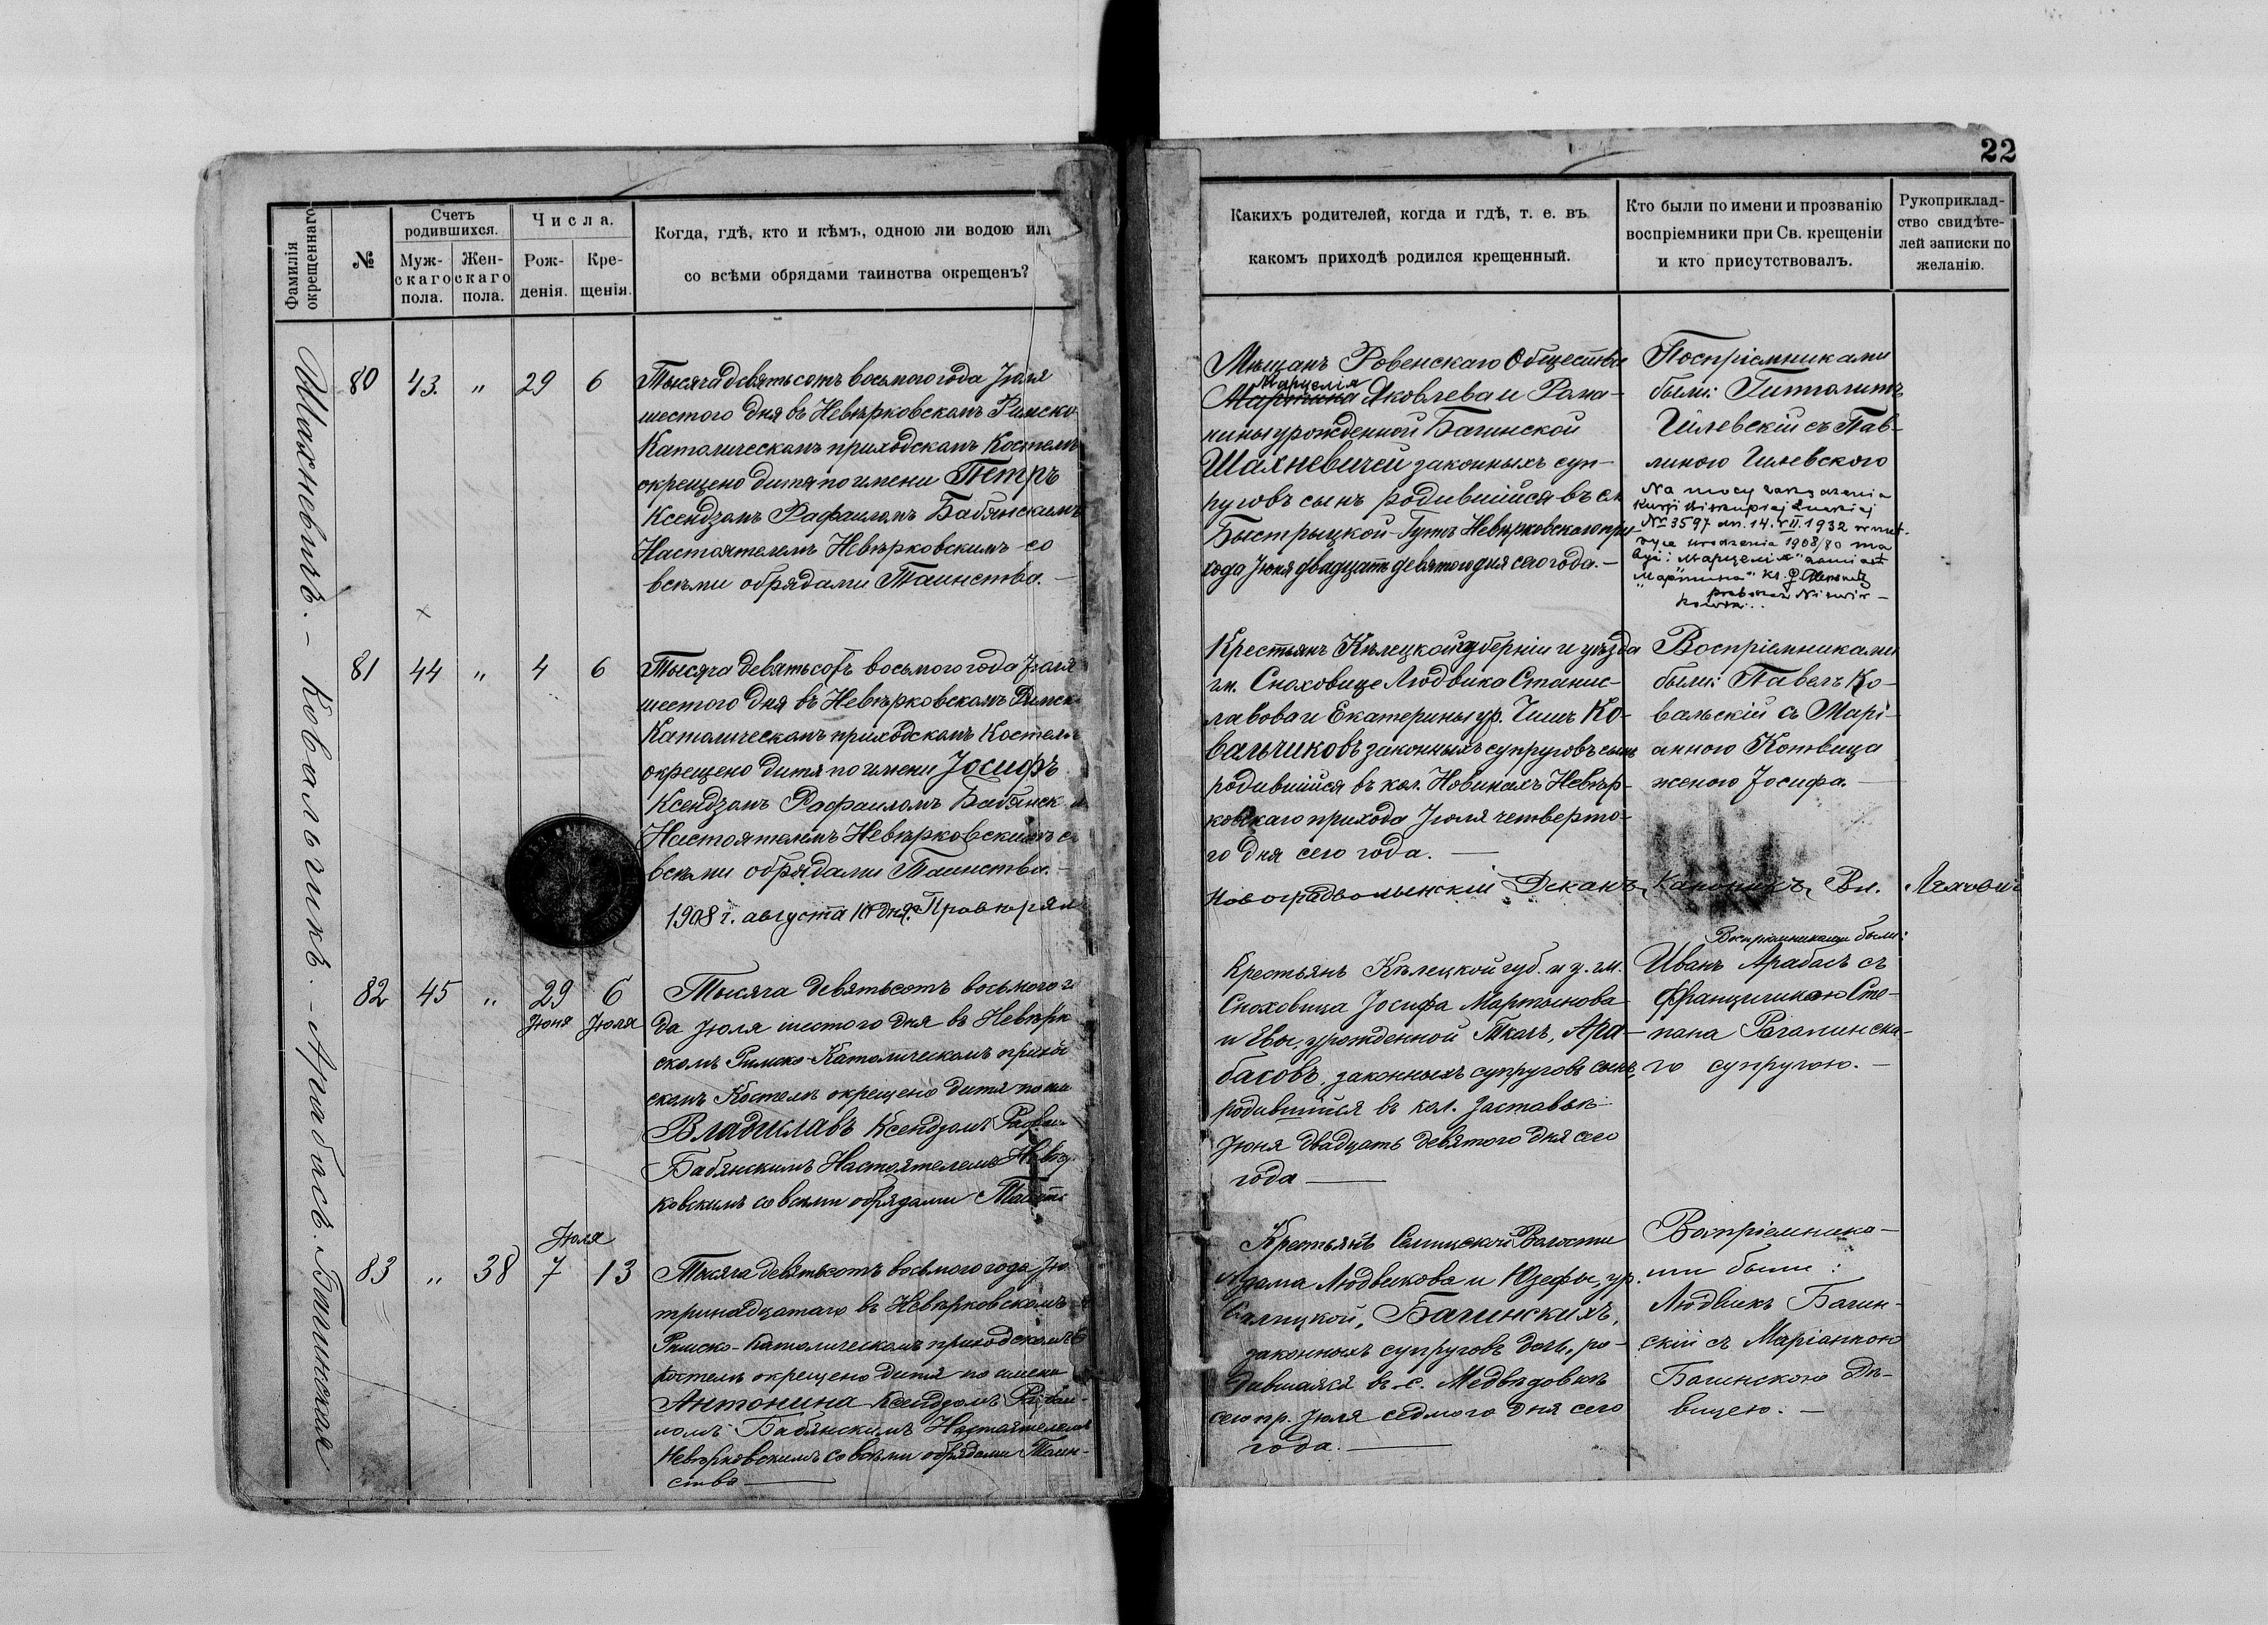 22
Фамилія окрещеннаго
№
Счетъ родившихся.
Муж-
скаго
пола.
Жен-
скаго
пола.
Числа.
Рож-
денія.
Кре-
щенія.
Когда, гдѣ, кто и кѣмъ, одною ли водою или
со всѣми обрядами таинства окрещенъ?
Какихъ родителей, когда и гдѣ, т. е. въ
какомъ приходѣ родился крещенный.
Кто были по имени и прозванію
воспріемники при Св. крещеніи
и кто присутствовалъ.
Рукоприклад-
ство свидѣте-
лей записки по
желанію.
Шахневичъ. – Ковальчикъ. – Арабасъ. Багинская
80 43. " 29 6
Тысяча девятьсотъ восьмого года Іюля
шестого дня въ Невѣрковскомъ Римско
Католическомъ приходскомъ Костелѣ
окрещено дитя по имени Петръ
Ксендзомъ Рафаиломъ Бабянскимъ
Настоятелемъ Невѣрковскимъ со
всѣми обрядами Таинства. –
Мѣщанъ Ровенскаго Общества
Марцелія
Мартина Яковлева и Рома-
нины урожденной Багинской
Шахневичей законныхъ суп-
руговъ сынъ родившійся въ с.
Быстрыцкой-Гутѣ Невѣрковского при-
хода Іюня двадцать девятого дня сего года. –
Поспріемниками
были: Гипполитъ
Гилевскій съ Пав-
линою Гилевского
Na mocy
Kurji Biskupiej Łuckiej
№ 3597 dn. 14. VII. 1932 w met-
ryce urodzenia 1908/80 ma
być: "Марцелія" zamiast
"Мартина" Ks.
proboszcz Niewir-
kowski.
×
81 44 " 4 6
Тысяча девятьсотъ восьмого года Іюля
шестого дня въ Невѣрковскомъ Римск
Католическомъ приходскомъ Костелѣ
окрещено дитя по имени Іосифъ
Ксендзомъ Рафаиломъ Бабянск
Настоятелемъ Невѣрковскимъ с
всѣми обрядами Таинства. –
Крестьянъ Кѣлецкой губерніи и уѣзда
гм. Сноховице Людвика Станис-
лавова и Екатерины ур. Чишъ Ко-
вальчиковъ законныхъ супруговъ сынъ
родившійся въ кол. Новинахъ Невѣр-
ковскаго прихода Іюля четверто-
го дня сего года. –
Воспріемниками
были: Павелъ Ко-
вальскій съ Марі-
анною Котвица
женою Іосифа. –
1908 г. августа 10 дня. Провѣрял
Новоградволынскій Деканъ, Каноникъ, Вл.
82 45 " 29 6
Іюня Іюля
Тысяча девятьсотъ восьмого г
да Іюля шестого дня въ Невѣрк
скомъ Римско-Католическомъ прихо
скомъ Костелѣ окрещено дитя по им
Владиславъ Ксендзомъ Рафаи
Бабянскимъ Настоятелемъ Невѣр
ковскимъ со всѣми обрядами Таинст
Крестьянъ Кѣлецкой губ. и у. гм.
Сноховица Іосифа Мартынова
и Евы, урожденной Ткачъ, Ара-
басовъ, законныхъ супруговъ сынъ,
родившійся въ кол. Заставье
Іюня двадцать девятого дня сего
года –
Воспріемниками были:
Иванъ Арабасъ съ
Францишкою Сте-
пана Рогалинска-
го супругою. –
83 " 38 7 13
Іюля
Тысяча девятьсотъ восьмого года Ію
тринадцатаго въ Невѣрковскомъ
Римско-Католическомъ приходскомъ
Костелѣ окрещено дитя по имени
Антонина Ксендзомъ Рафаи-
ломъ Бабянскимъ Настоятелемъ
Невѣрковскимъ со всѣми обрядами Таин-
ства
Крестьянъ Волости
Адама Людвикова и Юзефы, ур.
Багинскихъ,
законныхъ супруговъ дочь, ро-
дившаяся въ с. Медвѣдовкѣ
сего пр. Іюля седмого дня сего
года. –
Воспріемника-
ми были:
Людвикъ Багин-
скій съ Маріанною
Багинскою Дѣ-
вицею. –